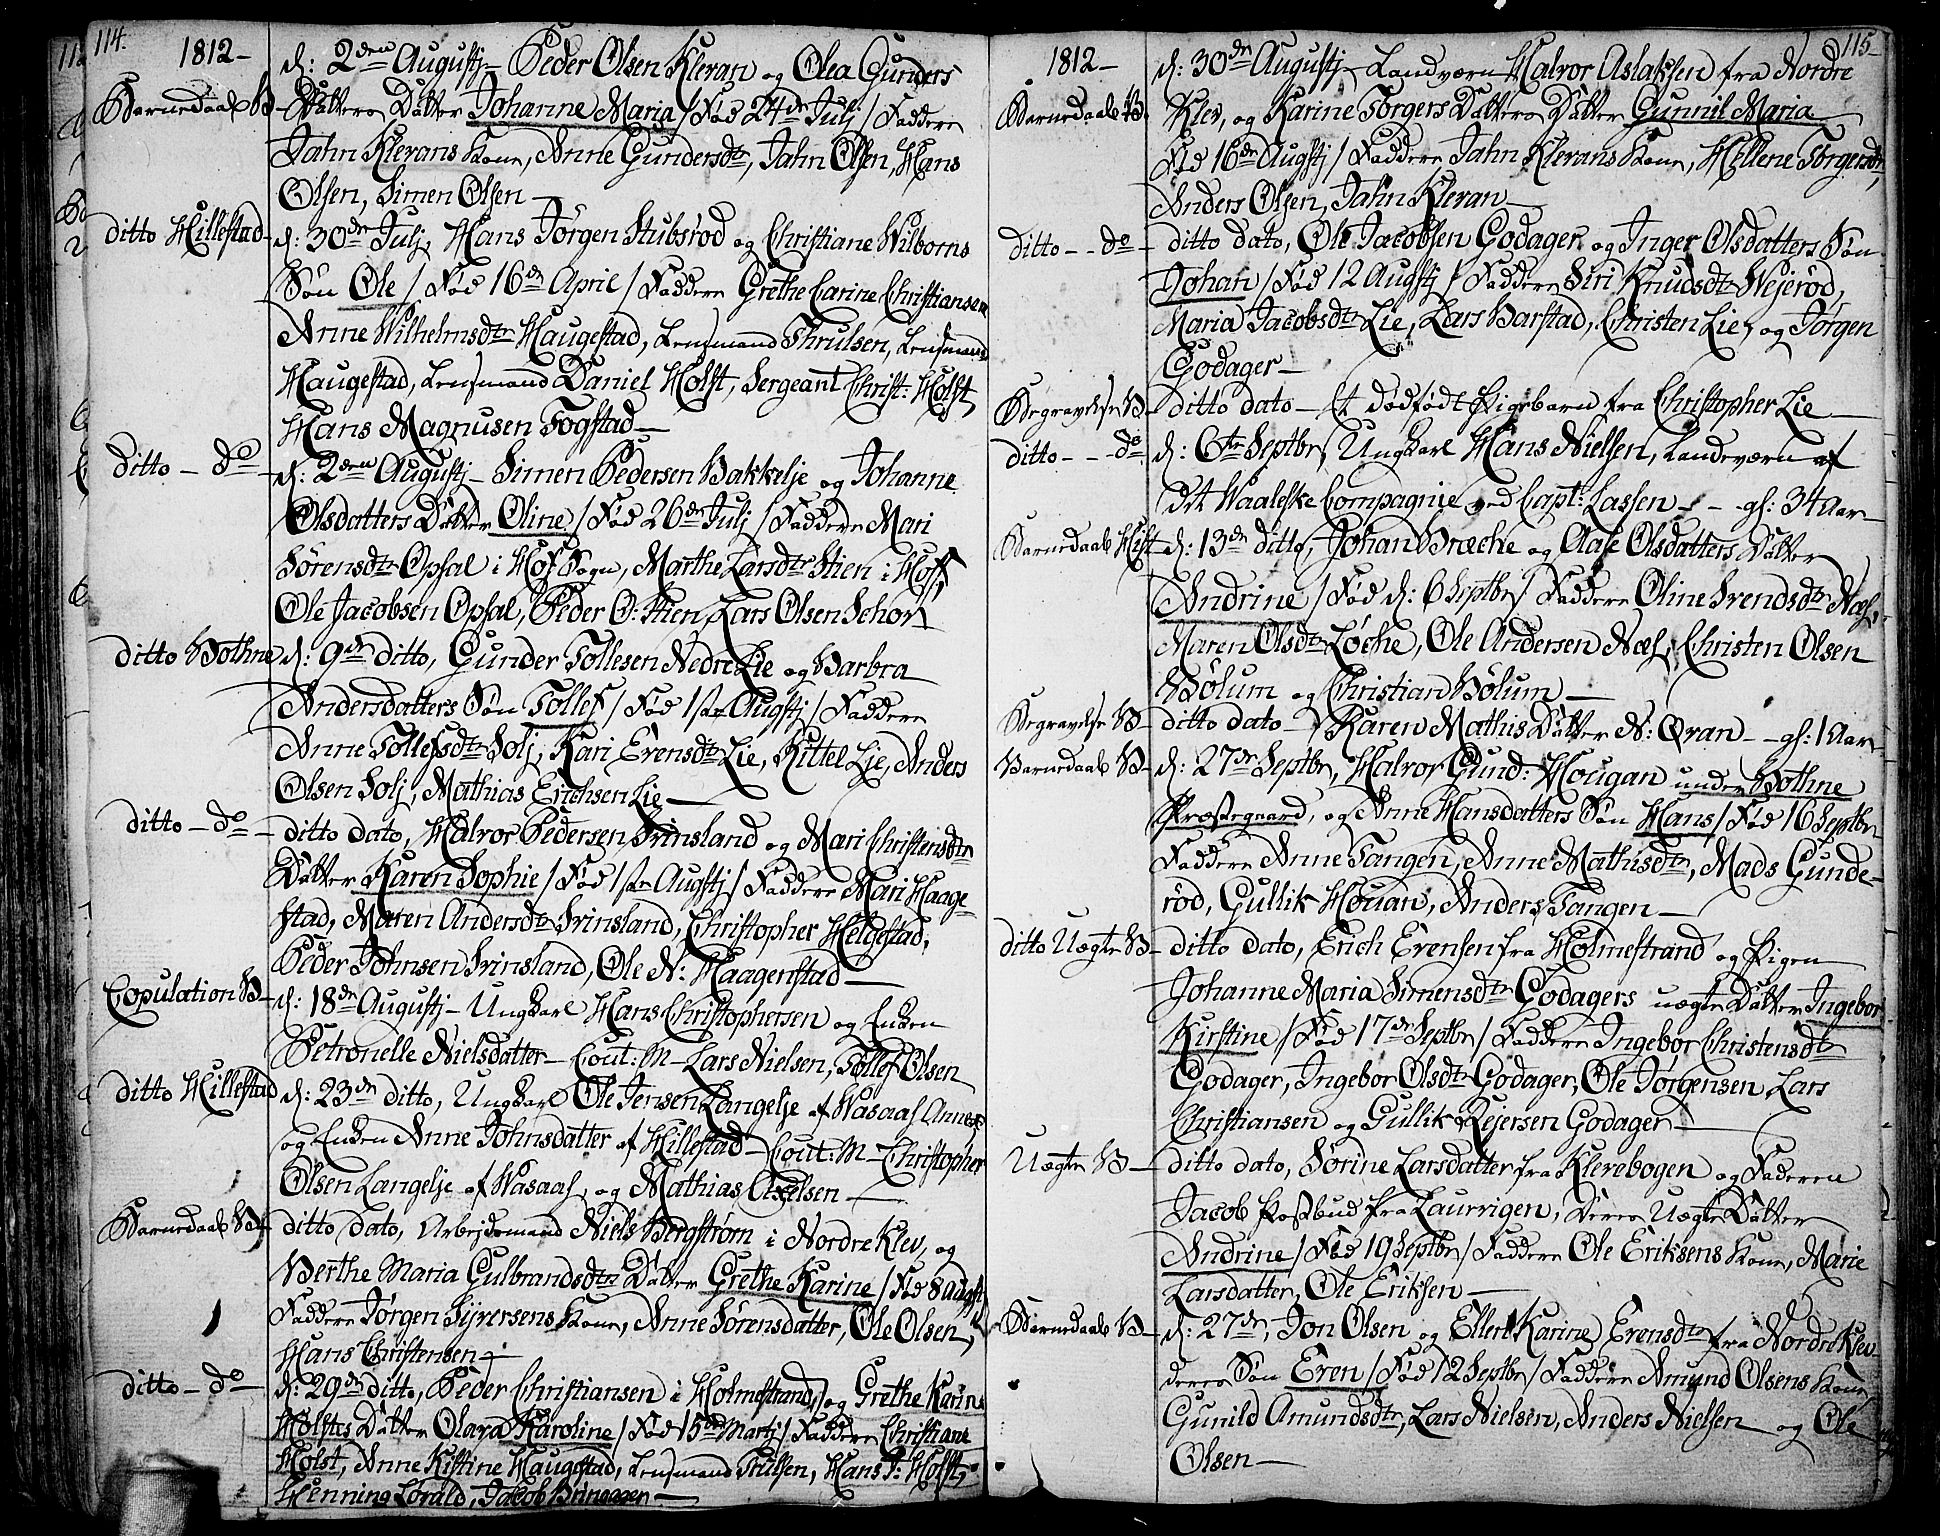 114.
1812-
Barnedaab B- d: 2den Augustj- Peder Olsen Kleran og Olea Gunders
Datters Datter Johanne Maria / Fød 24de Julj / Faddere
Jahn Klerans Kone, Anne Gundersdtr, Jahn Olsen, Hans
Olsen, Simen Olsen -
ditto Hillestad- d: 30de Julj, Hans Jørgen Stubsrød og Christiane Wilborns
Søn Ole / Fød 16de April / Faddere Grethe Carine Christiansen
Anne Wilhelmsdtr Haugestad, Lensmand Thrulsen, Lensmand
Haugestad, Lensmand Daniel Holst, Sergeant Christ: Holst,
Hans Magnusen Fogstad-
ditto - do - d: 2den Augustj- Simen Pedersen Bakkelje og Johanne
Olsdatters Datter Oline / Fød 26de Julj / Faddere Mari
Sørensdtr Opsal i Hof Sogn, Marthe Larsdtr Stien i Hoff,
Ole Jacobsen Opsal, Peder O: Stien, Lars Olsen Sehor
ditto Bothne d: 9de ditto, Gunder Tollesen Nedre Lie og Barbra
Andersdatters Søn Tollef / Fød 1ste Augstj / Faddere
Anne Tollefsdtr Solj, Kari Evensdtr Lie, Kittel Lie, Anders
Olsen Solj, Mathias Erichsen Lie-
ditto - do - ditto dato, Halvor Pedersen Srinsland og Mari Christensdtr
Datter Karen Sophie / Fød 1ste Augstj / Faddere Mari Haage-
stad, Maren Andersdtr Srinsland, Christopher Helgestad,
Peder Johnsen Srinsland, Ole N: Haagenstad-
Copulation B- d: 18de Augustj- Ungkarl Hans Christophersen og Enken
Petronelle Nielsdatter- Cout: M- Lars Nielsen, Tollef Olsen
ditto Hillestad d: 23de ditto, Ungkarl Ole Jensen Langelje af Wasaas Annex
og Enken Anne Johnsdatter af Hillestad- Cout: M- Christopher
Olsen Langelje af Wasaas, og Mathias Axelsen-
Barnedaab ditto dato, Arbejdsmand Niels Bergstrøm i Nordre Klev, og
Berthe Maria Gulbrandsdtrs Datter Grethe Karine / Fød 8 Augst
Faddere Jørgen Syversens Kone, Anne Sørensdatter, Ole Olsen,
Hans Christensen-
ditto - do - d: 29de ditto, Peder Christiansen i Holmestrand, og Grethe Karine
Holstes Datter Olava Karoline / Fød 15de Martj / Faddere Christiane
Holst, Anne Kistine Haugestad, Lensmand Trulsen, Hans P: Holst,
Henning Lorald, Jacob Bringager-
115-
1812-
Barnedaab B. d: 30de Augustj- Landværn Halvor Aslaksen fra Nordre
Klev, og Karine Torgers Datters Datter Gunnil Maria
Fød 16de Augstj / Faddere Jahn Klerans Kone, Hellene Torgersdtr,
Anders Olsen, Jahn Kleran-
ditto - - do - ditto dato, Ole Jacobsen Godager, og Inger Olsdatters Søn
Johan / Fød 12 Augstj / Faddere Siri Knudsdtr Wejerød,
Maria Jacobsdtr Lie, Lars Barstad, Christen Lie, og Jørgen
Godager-
Begravelse B- ditto dato- Et dødfødt Pigebarn fra Christopher Lie-
ditto - - do d: 6te Septbr, Ungkarl Hans Nielsen, Landeværn af
det Waaleske Compagnie ved Capt: Lassen - - gl: 34 Aar-
Barnedaab Hist d: 13de ditto, Johan Bræcke og Aase Olsdatters Datter
Andrine / Fød d: 6 Septbr / Faddere Oline Svendsdtr Næs,
Maren Olsdtr Løcke, Ole Andersen Næs, Christen Olsen
Bølum og Christian Bølum-
Begravelse B- ditto dato- Karen Mathis Datter N: Qvan - gl: 1 Aar-
Barnedaab B- d: 27de Septbr, Halvor Gund: Hougan under Bothne
Præstegaard, og Anne Hansdatters Søn Hans / Fød 16 Septbr
Faddere Anne Tangen, Anne Mathisdtr, Mads Gunde-
rød, Gullik Houan, Anders Tangen-
ditto Uægte B- ditto dato, Erich Evensen fra Holmestrand og Pigen
Johanne Maria Simensdtr Godagers uægte Datter Ingebor
Kirstine / Fød 17de Septbr / Faddere Ingebor Christensdtr
Godager, Ingebor Olsdtr Godager, Ole Jørgensen Lars
Christiansen og Gullik Rejersen Godager-
Uægte B- ditto dato, Sørine Larsdatter fra Klevebogen og Faderen
Jacob Postbud fra Laurrigen, Deres Uægte Datter
Andrine / Fød 19 Septbr / Faddere Ole Eriksens Kone, Marie
Larsdatter, Ole Eriksen-
Barnedaab B- d: 27de, Jon Olsen og Ellen Karine Evensdtr fra Nordre Klev
deres Søn Even / Fød 12 Septbr / Faddere Amund Olsens Kone
Gunild Amundsdtr, Lars Nielsen, Anders Nielsen og Ole
Olsen-